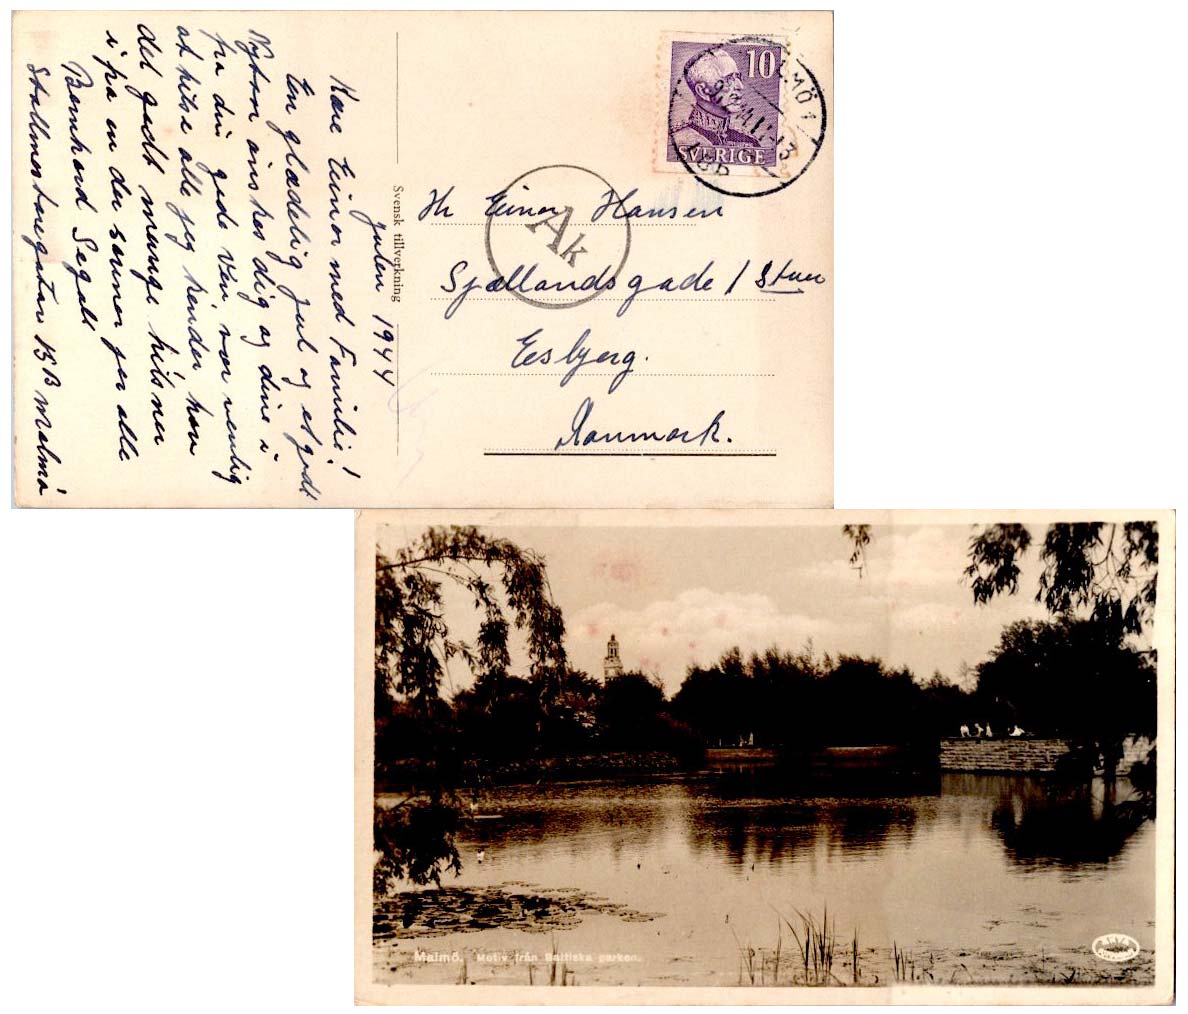 Julen 1944
Kære Einor med Familie!
En glædelig jul og et godt
Nytaar ønskes dig og dine i
fra din gode Ven vær venlig
at hilse alle jeg kender hav
det godt mange hilsner
i fra en der savner jer alle
Bernhard Segall
Stallmestaregatan 15B Malmö
Svensk tillverkning
10
SVERIGE
MALMÖ 1
Ak
Hr Einor Hansen
Sjællandsgade 1 Stuen
Esbjerg.
Danmark.
Malmö. Motiv från Baltiska parken.